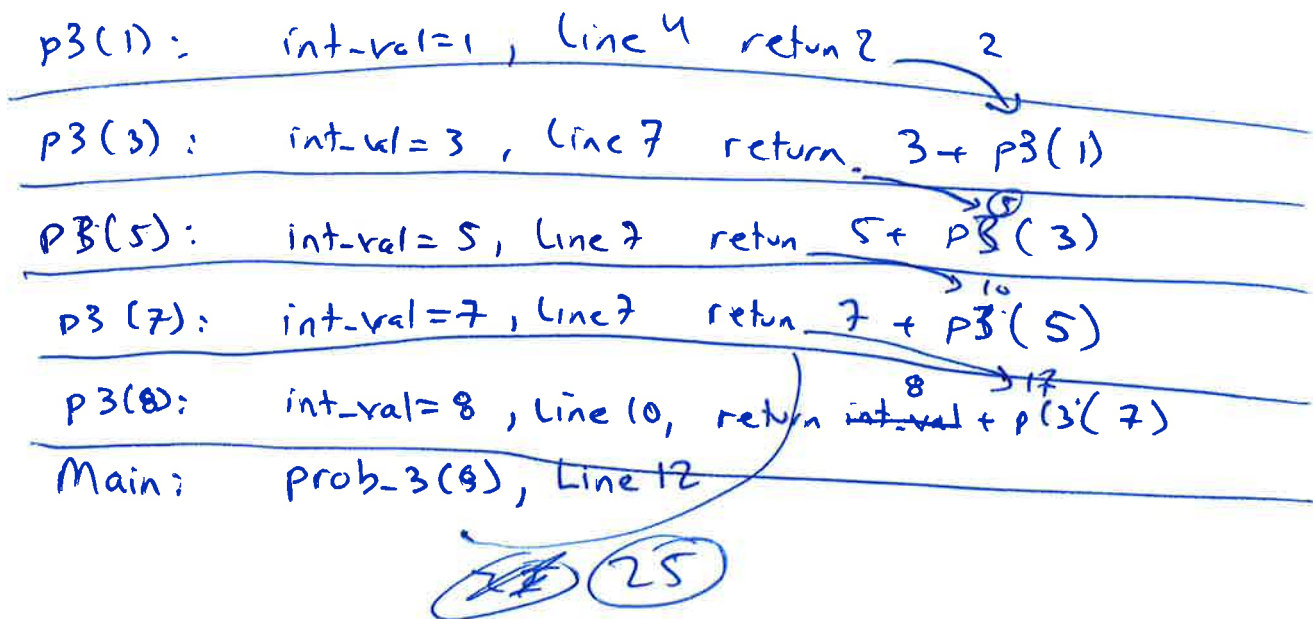 p3(1): int-val=1, Line 4 retun 2 2
p3(3): int-val=3, Line 7 return 3+ p3(1)
5
p3(5): int-val=5, Line 7 retun 5+ p3(3)
10
p3(7): int-val=7, Line 7 retun 7 + p3(5)
8 17
p3(8): int-val=8, Line 10, return int-val + p(3(7)
Main: prob-3(8), Line 12
25